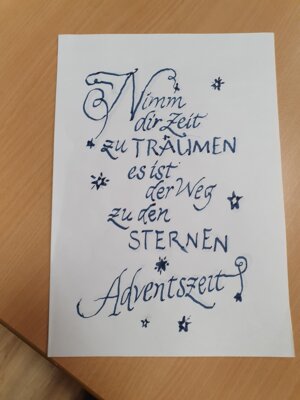 Nimm
dir Zeit
zu TRÄUMEN
es ist
der Weg
zu den
STERNEN
Adventszeit